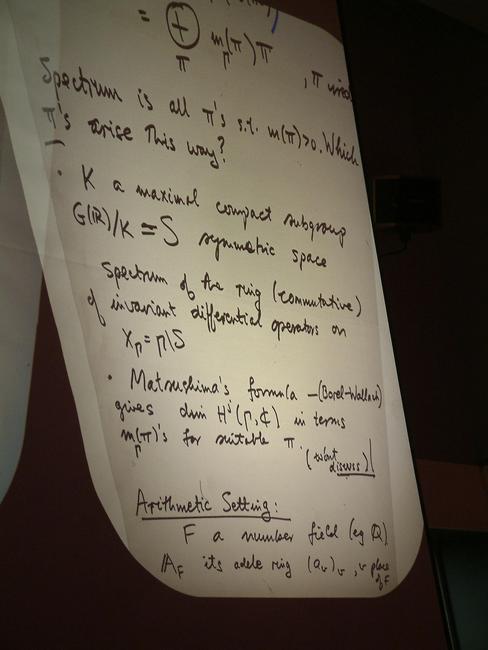 = ⊕ m(π)π , π irred
π Γ
Spectrum is all π's s.t. m(π)>0. Which
π's arise this way?
• K a maximal compact subgroup
G(ℝ)/K = S symmetric space
Spectrum of the ring (commutative)
of invariant differential operators on
X_Γ = Γ\S
• Matsushima's formula – (Borel-Wallach)
gives dim Hⁱ(Γ, ℂ) in terms
m_Γ(π)'s for suitable π. (won't
discuss)
Arithmetic Setting:
F a number field (eg Q)
𝔸_F its adele ring (a_v)_v, v place
of F